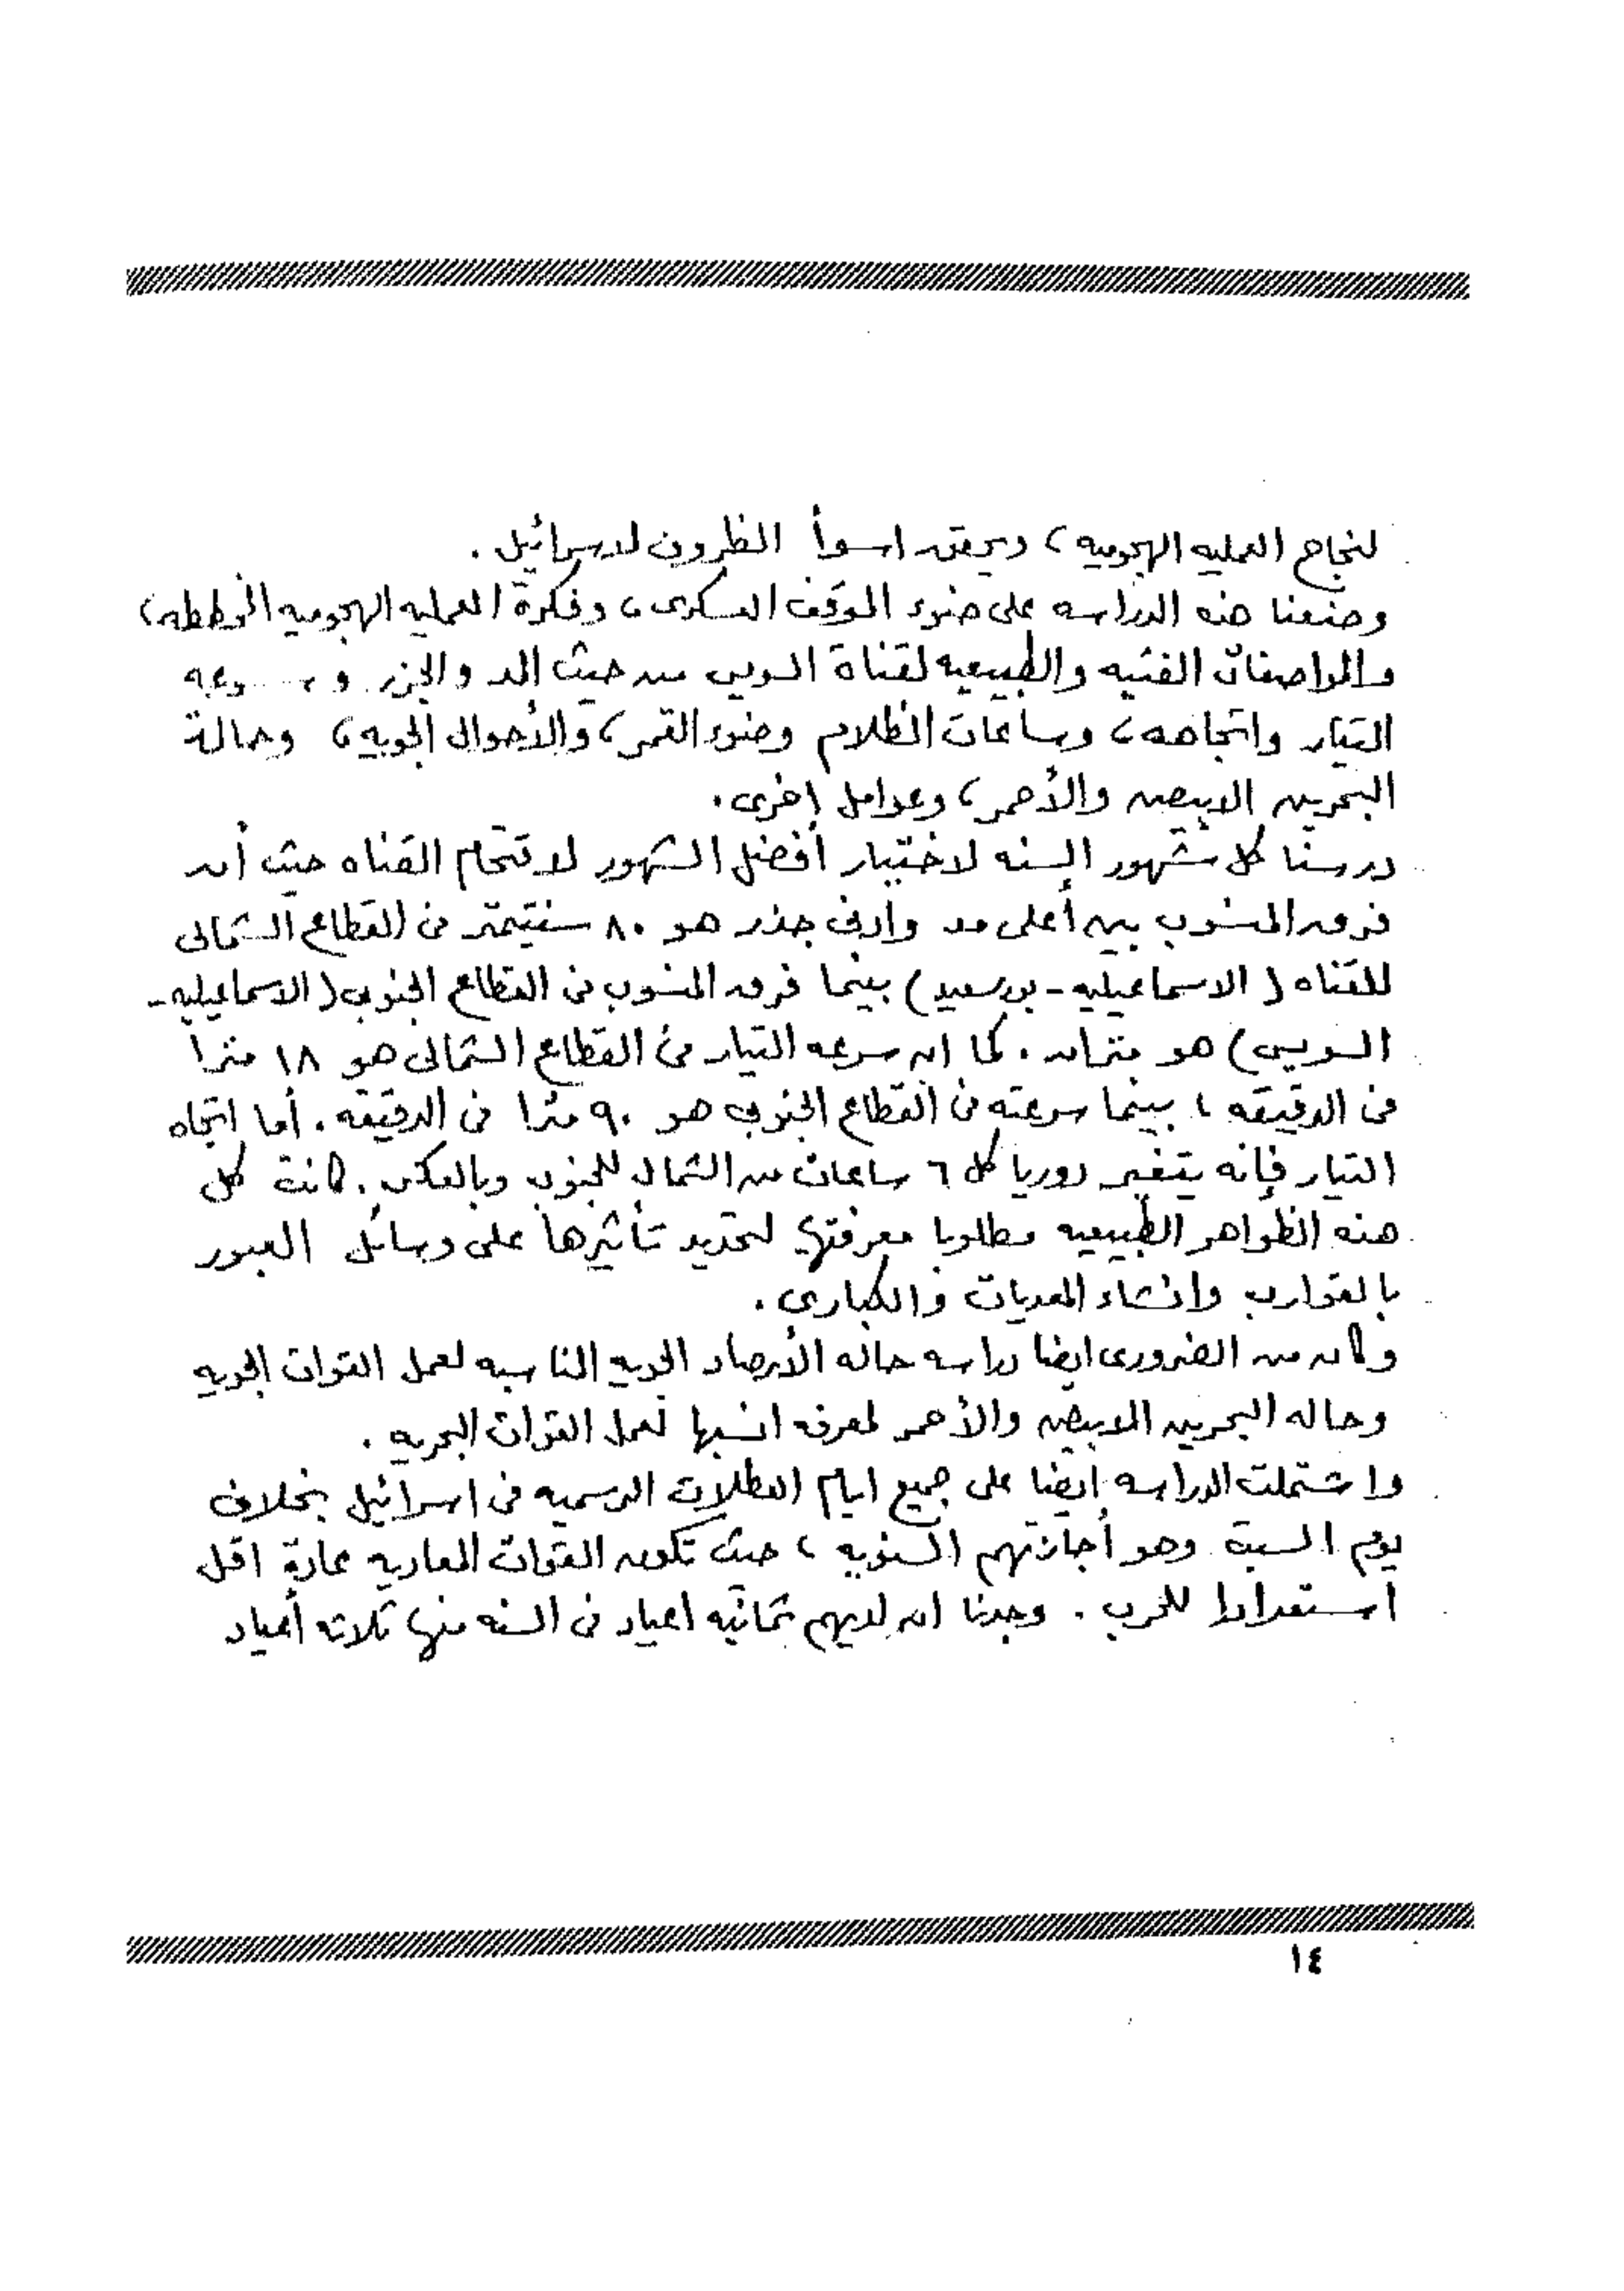 لنجاح العمليه الهجوميه، ويحقق اسوأ الظروف لاسرائيل.
وضعنا هذه الدراسه على ضوء الموقف العسكرى، وفكرة العمليه الهجوميه المخططه،
والمواصفات الفنيه والطبيعيه لقناة السويس من حيث المد والجزر وسرعه
التيار واتجاهه، وساعات الظلام وضوء القمر، والأحوال الجويه، وحالة
البحرين الابيض والأحمر، وعوامل اخرى.
درسنا كل شهور السنه لاختيار أفضل الشهور لاقتحام القناه حيث أن
فرق المنسوب بين أعلى مد وأدنى جذر هو ٨٠ سنتيمتر فى القطاع الشمالى
للقناه (الاسماعيليه - بورسعيد) بينما فرق المنسوب فى القطاع الجنوبى (الاسماعيليه -
السويس) هو متران. كما ان سرعه التيار فى القطاع الشمالى هو ١٨ مترا
فى الدقيقه، بينما سرعته فى القطاع الجنوبى هو ٩٠ مترا فى الدقيقه. أما اتجاه
التيار فإنه يتغير دوريا كل ٦ ساعات من الشمال للجنوب وبالعكس. كانت كل
هذه الظواهر الطبيعيه مطلوبا معرفتها لتحديد تأثيرها على وسائل العبور
بالقوارب وانشاء المعديات والكبارى.
وكان من الضرورى ايضا دراسه حاله الأرصاد الجويه المناسبه لعمل القوات الجويه
وحاله البحرين الابيض والأحمر لمعرفه انسبها لعمل القوات البحريه.
واشتملت الدراسه ايضا على جميع ايام العطلات الرسميه فى اسرائيل بخلاف
يوم السبت وهو أجازتهم السنويه، حيث تكون القوات المعاديه عادة اقل
استعدادا للحرب. وجدنا ان لديهم ثمانيه اعياد فى السنه منها ثلاثه أعياد
١٤